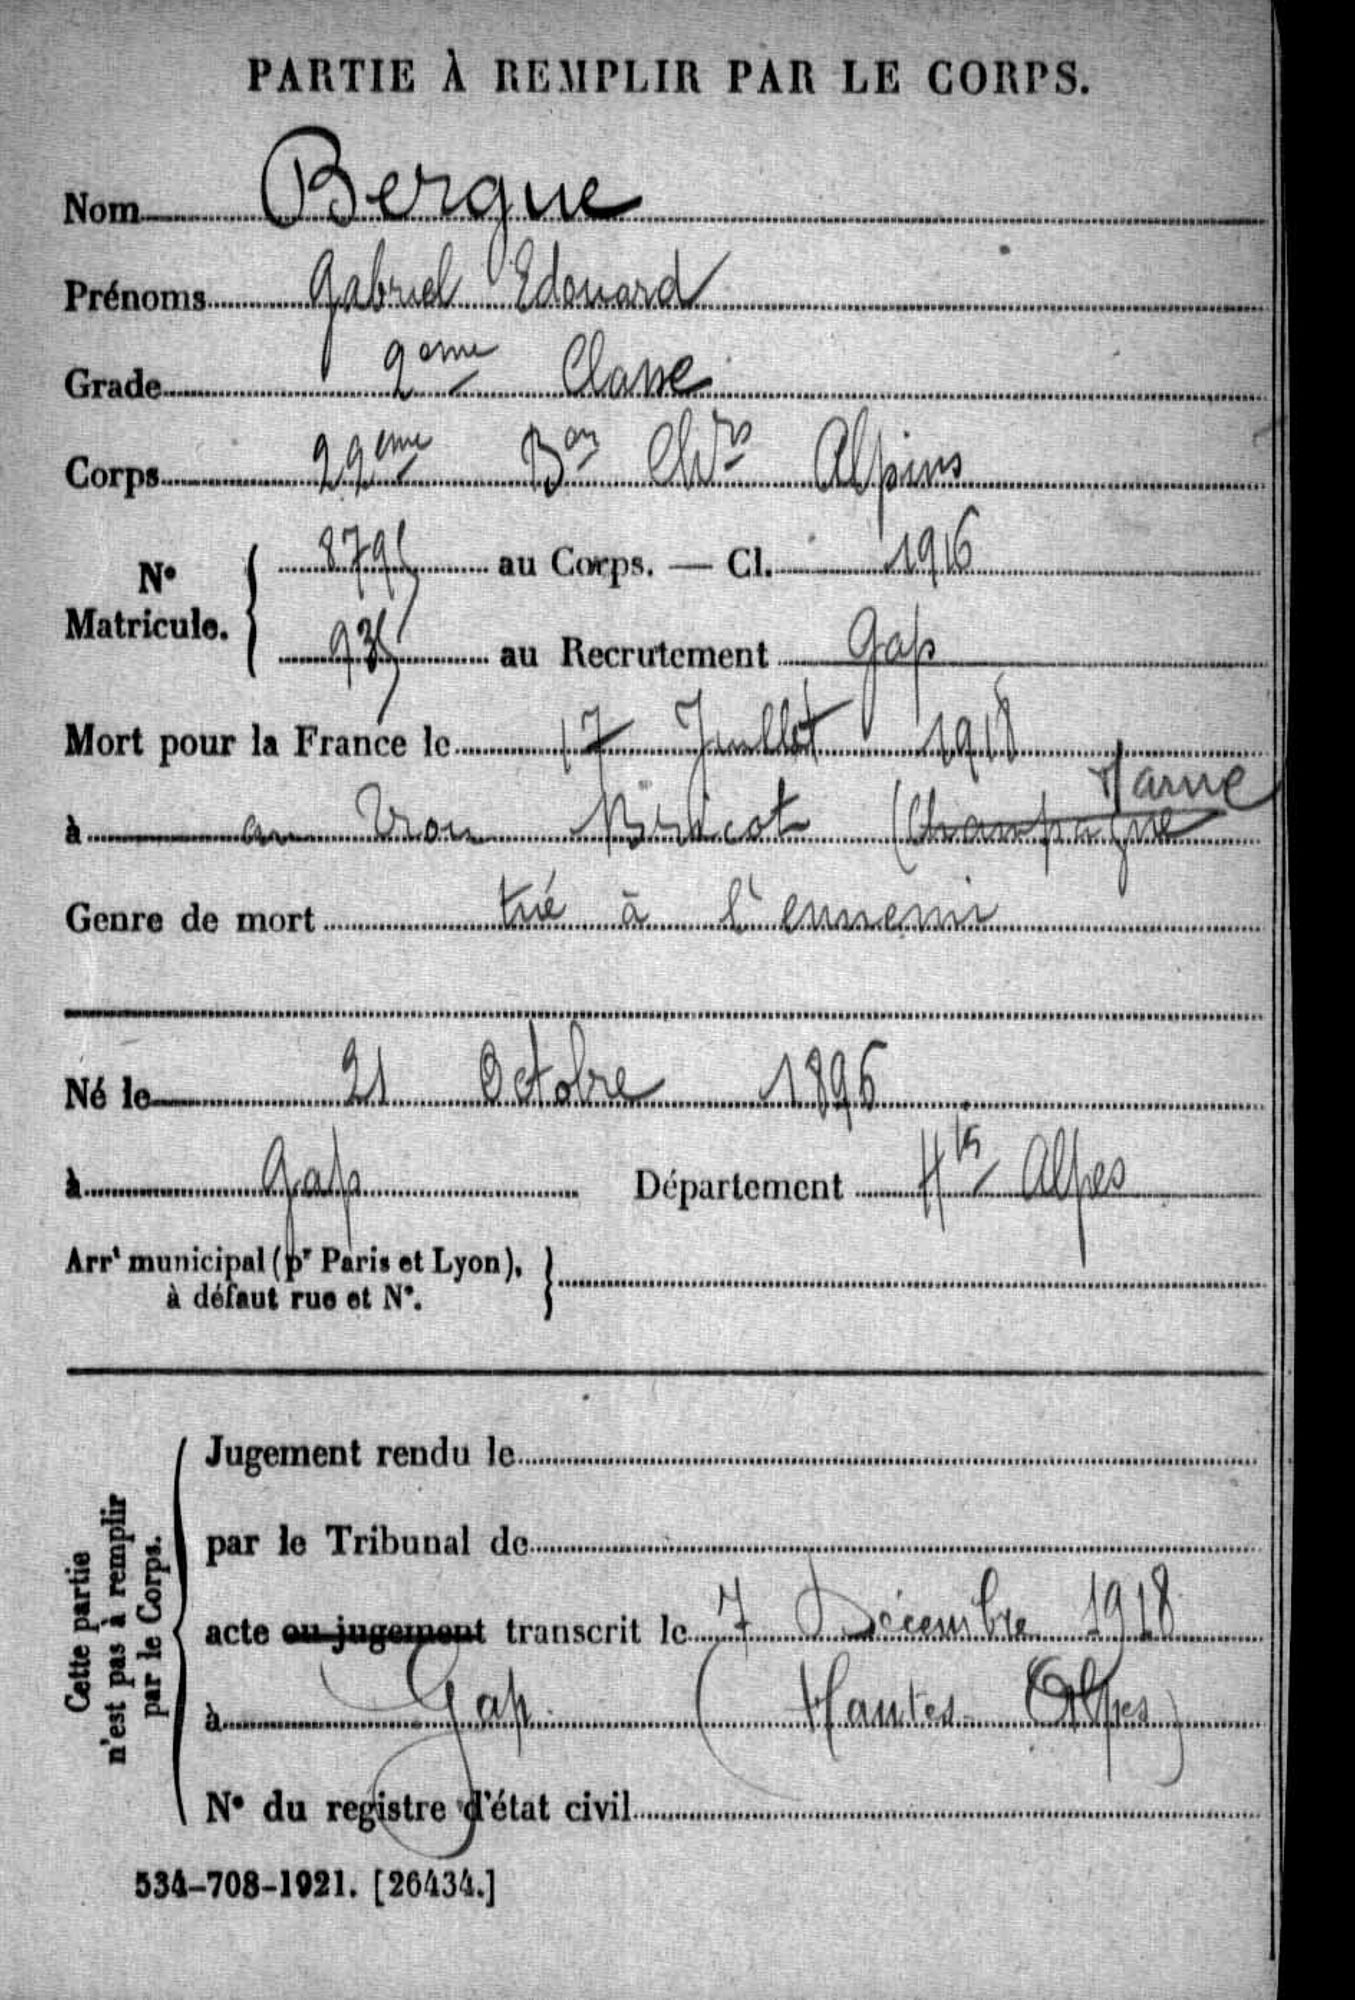 PARTIE À REMPLIR PAR LE CORPS.
Nom Bergue
Prénoms Gabriel Edouard
Grade 2eme Classe
Corps 22eme Bon Chrs Alpins
No Matricule. { 8795 au Corps. — Cl. 1916
935 au Recrutement Gap
Mort pour la France le 17 Juillet 1918
Marne
à au Trou Bricot (Champagne
Genre de mort tué à l'ennemi
Né le 21 Octobre 1896
à Gap Département Htes Alpes
Arrt municipal (pr Paris et Lyon), à défaut rue et No. }
Cette partie n'est pas à remplir par le Corps.
Jugement rendu le
par le Tribunal de
acte ou jugement transcrit le 7 Décembre 1918
à Gap (Hautes Alpes)
No du registre d'état civil
534-708-1921. [26434.]